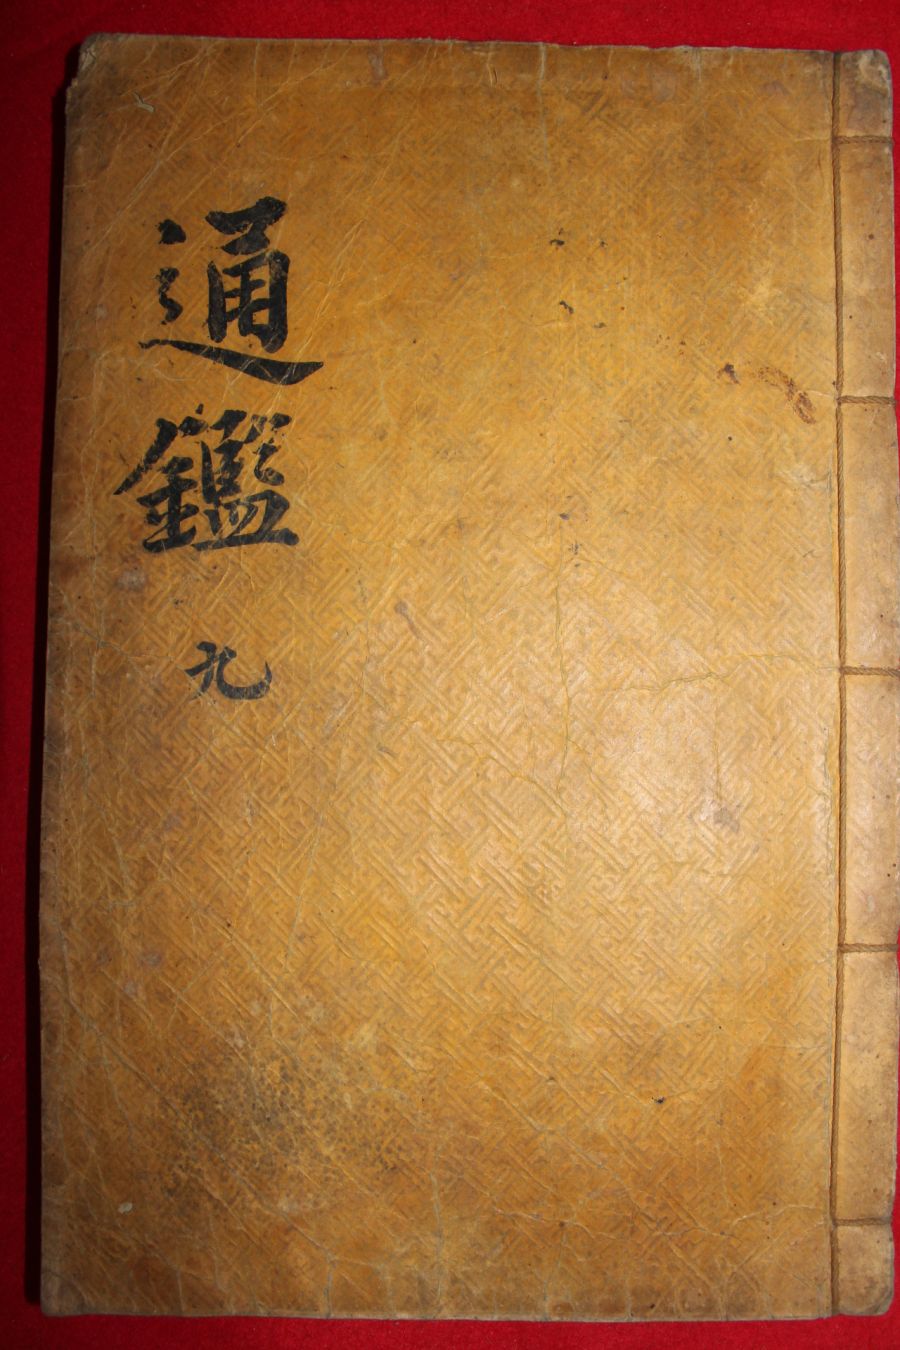 通鑑 九